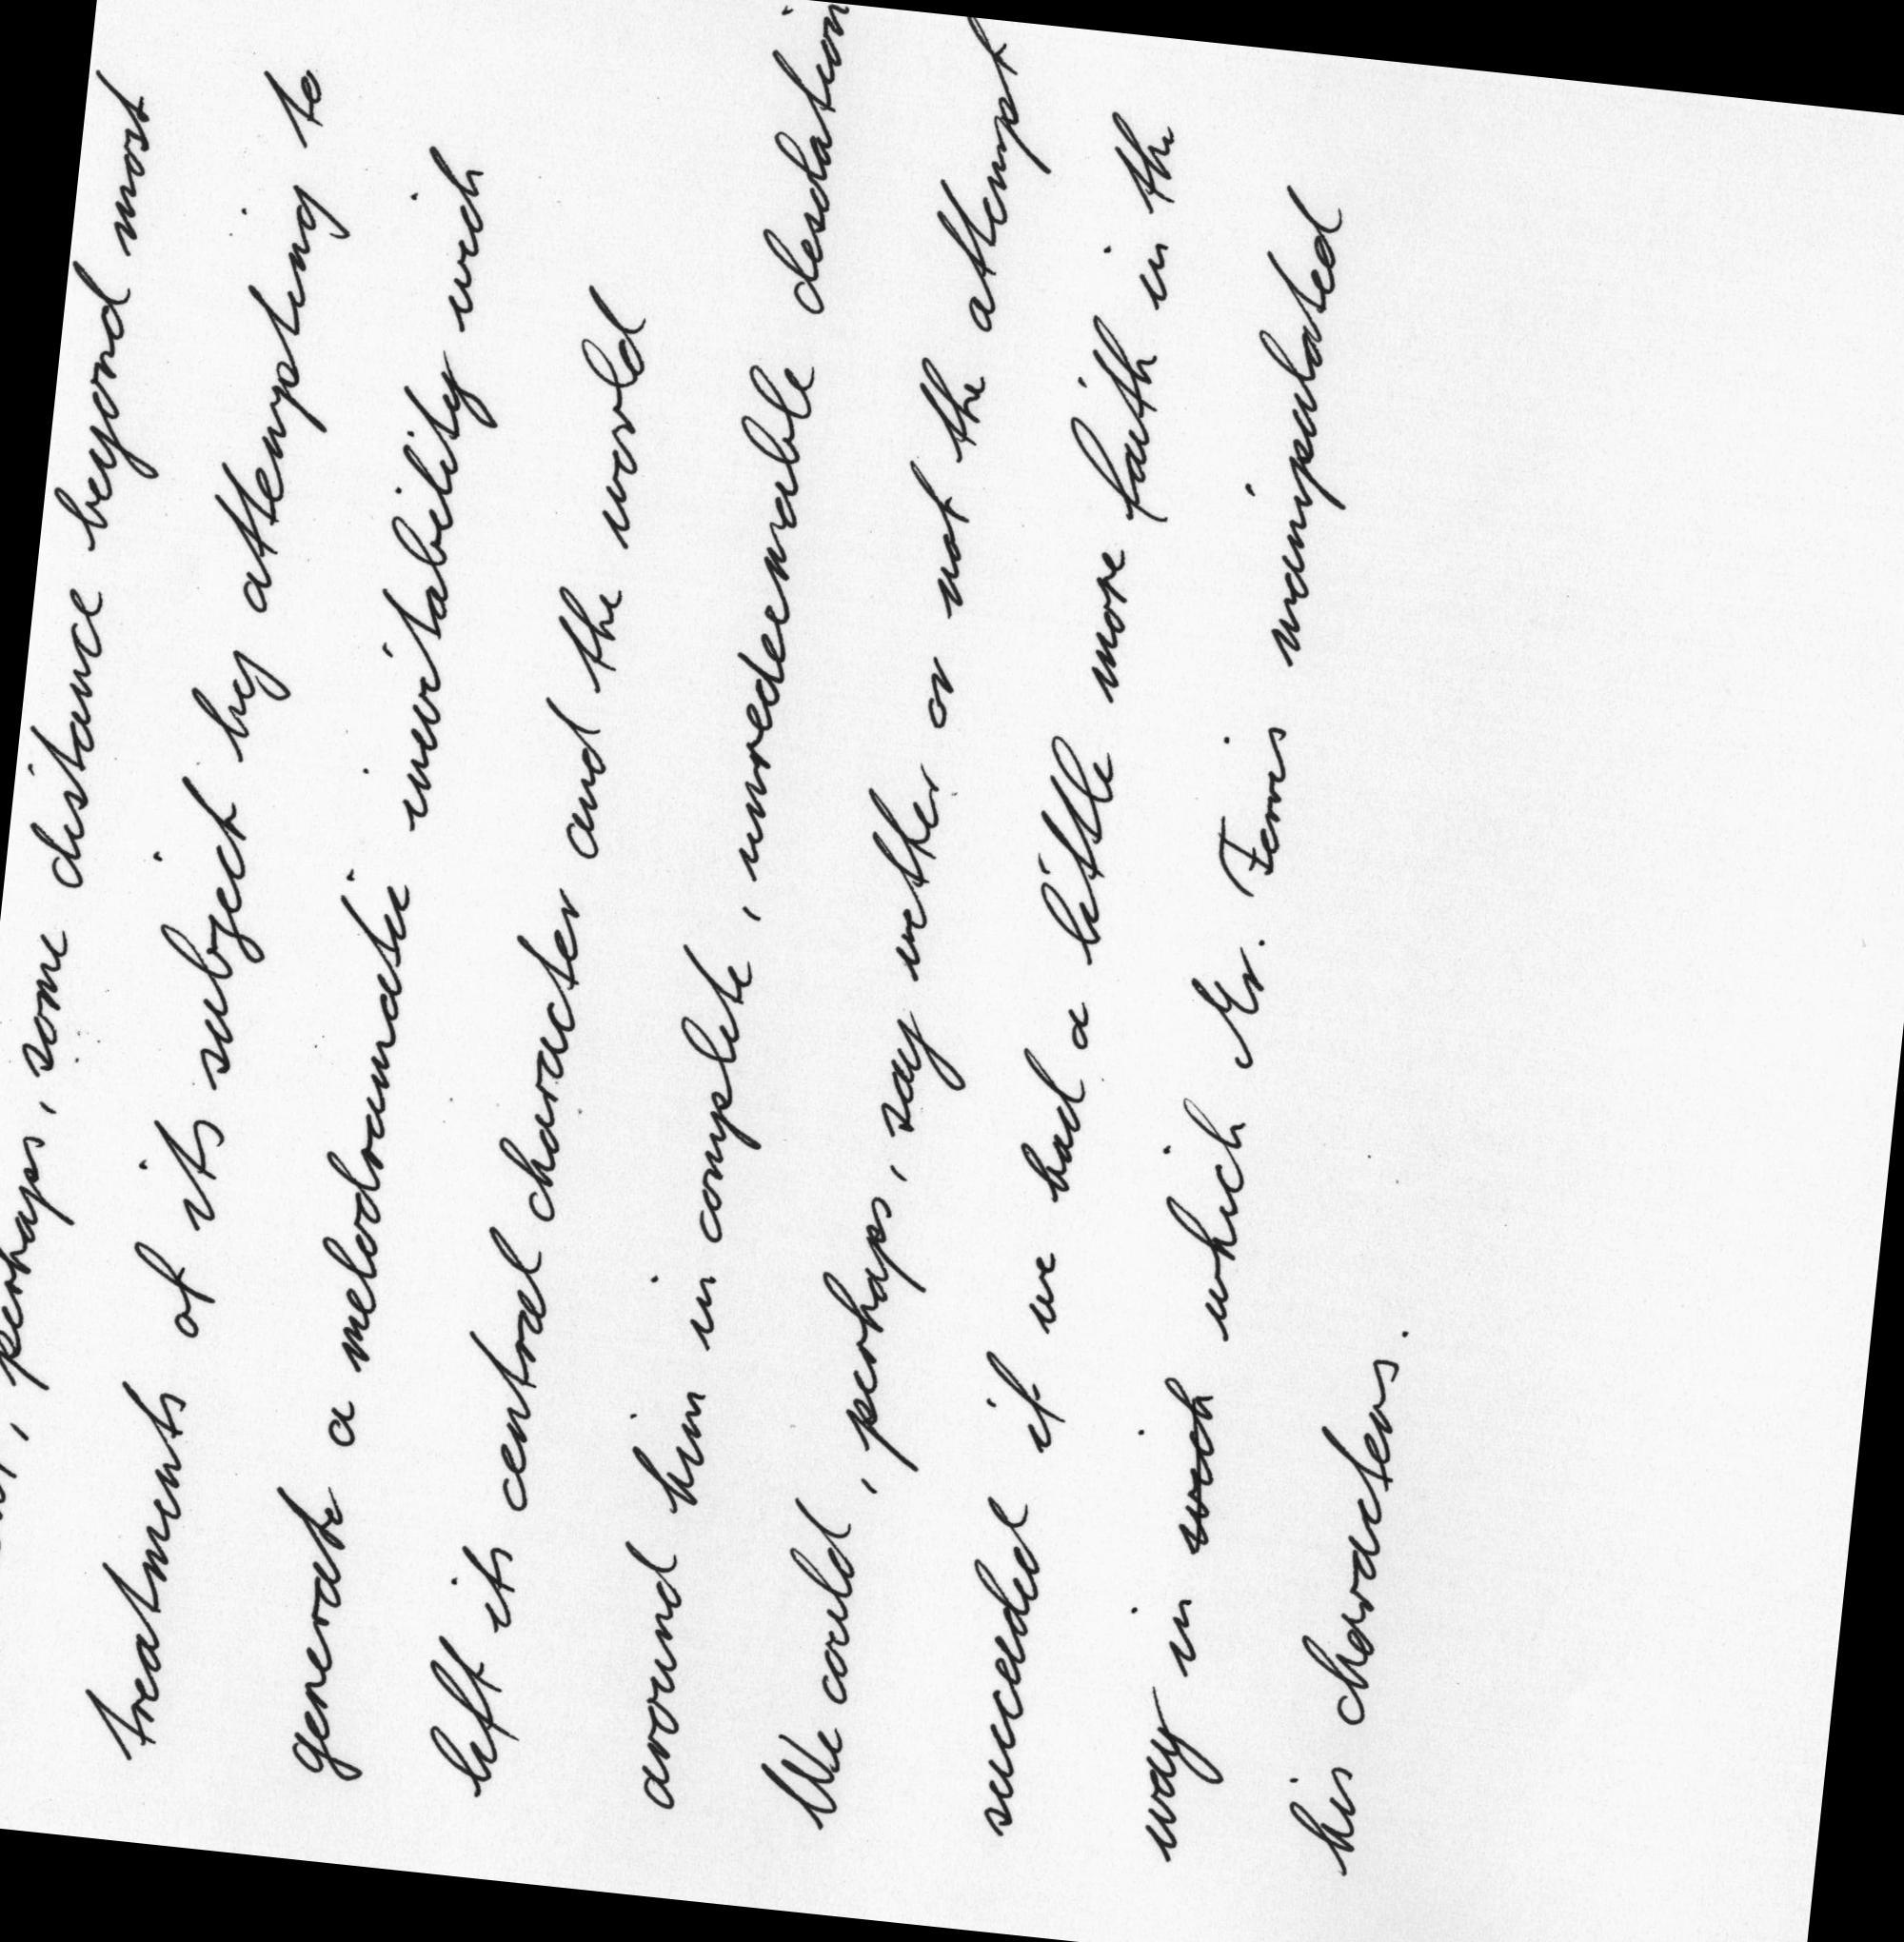 , perhaps, some distance beyond most
treatments of its subject by attempting to
generate a melodramatic inevitability wich
left its central character and the world
around him in complete, unredeemable desolation
We could, perhaps, say wether or not the attempt
succeded if we had a little more faith in the
way in which Mr. Ferris manipulated
his characters.